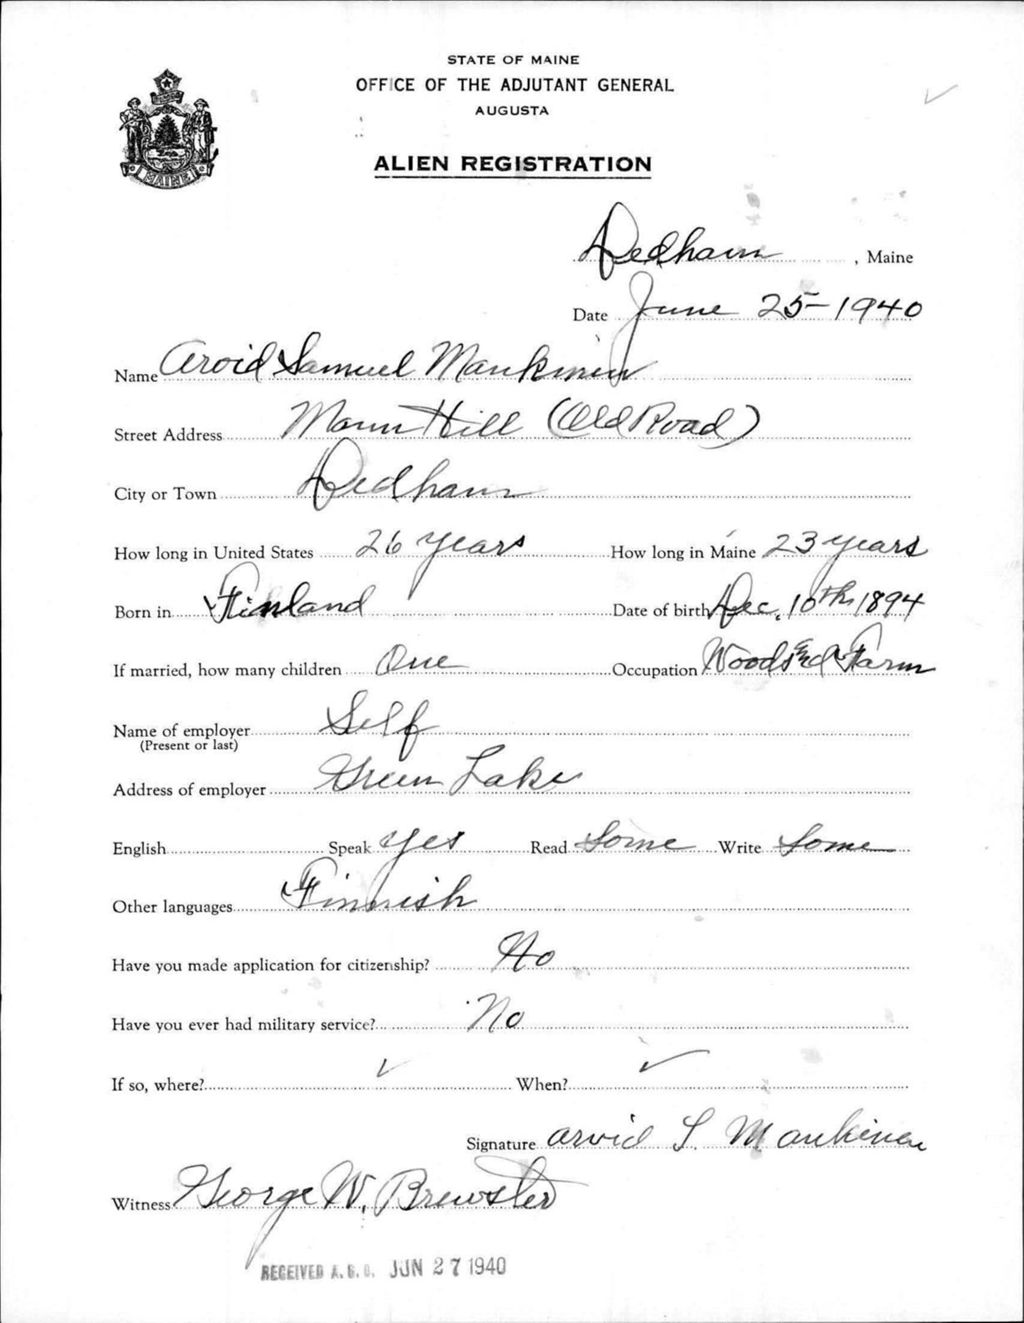 STATE OF MAINE
OFFICE OF THE ADJUTANT GENERAL
AUGUSTA
ALIEN REGISTRATION
MAINE
Dedham, Maine
Date June 25-1940
Name Arvid Samuel Maukinen
Street Address Mann Hill (Old Road)
City or Town Dedham
How long in United States 26 years How long in Maine 23 years
Born in Finland Date of birth Dec. 10th 1894
If married, how many children One Occupation Woods and Farm
Name of employer Self
(Present or last)
Address of employer Green Lake
English Speak yes Read Some Write Some
Other languages Finnish
Have you made application for citizenship? No
Have you ever had military service? No
If so, where? ✓ When? ✓
Signature Arvid S Maukinen
Witness George W. Brewster
RECEIVED A.G.O. JUN 27 1940